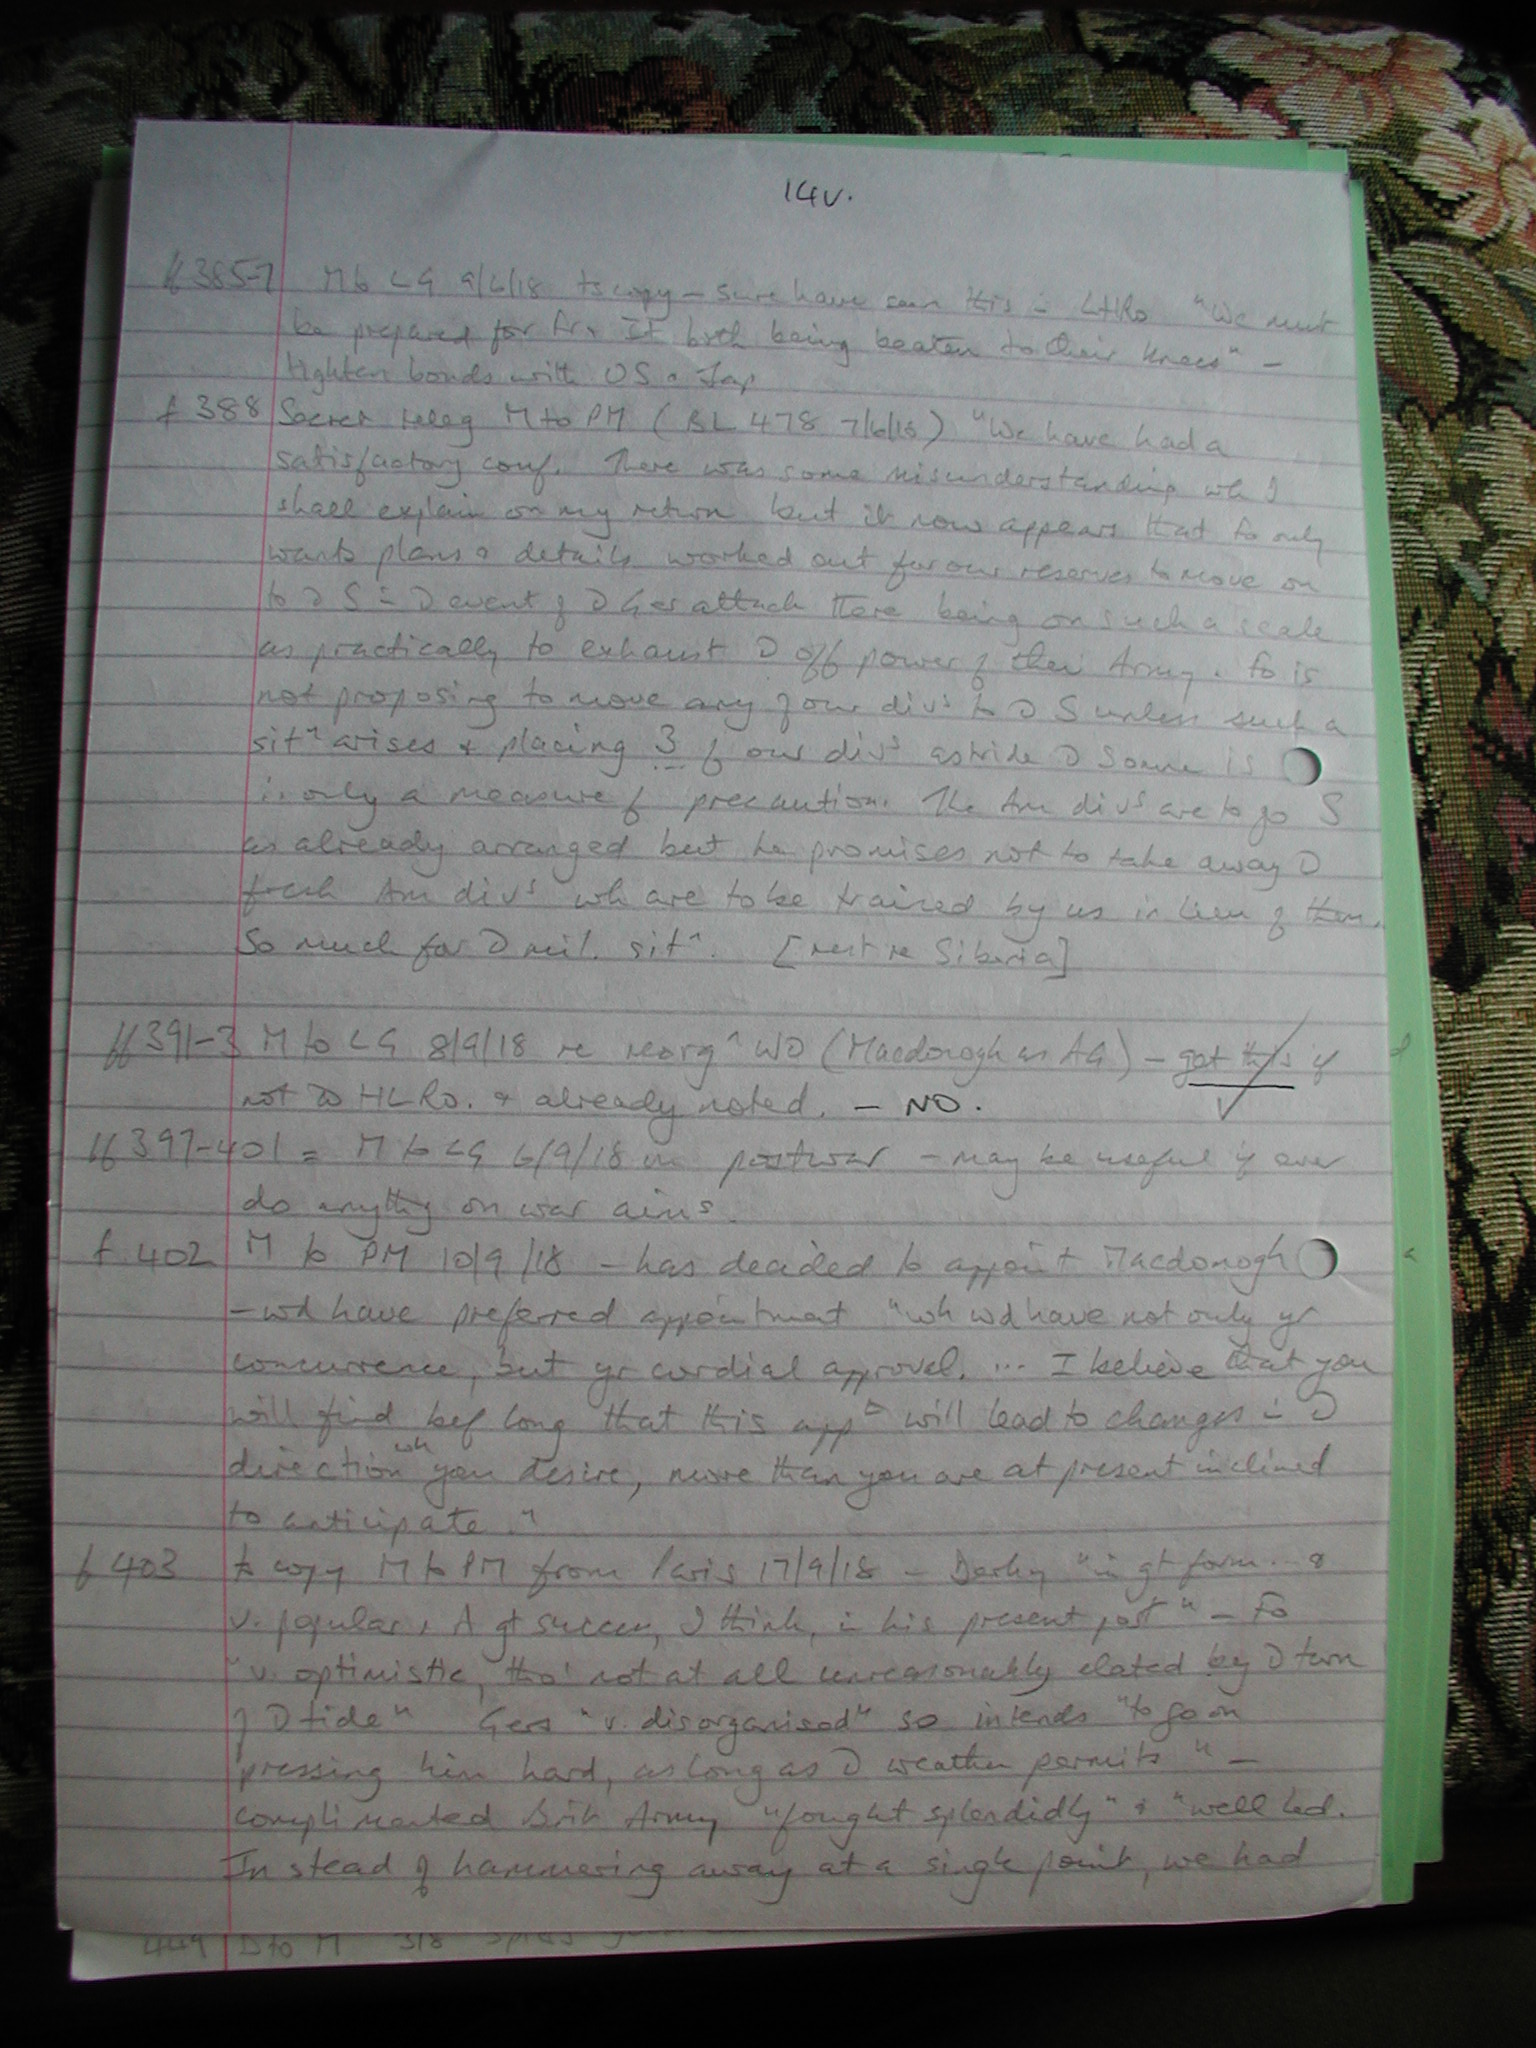 14v.
ff 385-7 M to LG 9/6/18 ts copy – sure have seen this = HLRO "We must
be prepared for Fr & It both being beaten to their knees" –
tighten bonds with US & Jap
f 388 Secret teleg M to PM (BL 478 7/6/18) "We have had a
satisfactory conf. There was some misunderstanding wh I
shall explain on my return but it now appears that Fo only
wants plans & details worked out for our reserves to move on
to D S = D event of D Ges attack there being on such a scale
as practically to exhaust D off power of their Army. Fo is
not proposing to move any of our divs to D S unless such a
sitn arises & placing 3 of our divs astride D Somme is
is only a measure of precaution. The Am divs are to go S
as already arranged but he promises not to take away D
fresh Am divs wh are to be trained by us in lieu of them.
So much for D mil. sitn. [rest re Siberia]
ff 391-3 M to LG 8/9/18 re reorgn WO (Macdonogh as AG) – get this if
not D HLRO. & already noted. – NO.
ff 397-401 = M to LG 6/9/18 postwar – may be useful if ever
do anythg on war aims.
f 402 M to PM 10/9/18 – has decided to appoint Macdonogh
– wd have preferred appointment "wh wd have not only yr
concurrence, but yr cordial approval. ... I believe that you
will find bef long that this appt will lead to changes = D
direction wh you desire, more than you are at present inclined
to anticipate."
f 403 ts copy M to PM from Paris 17/9/18 – Derby "in gt form ... &
v. popular. A gt success, I think, in his present post" – Fo
"v. optimistic, tho' not at all unreasonably elated by D turn
of D tide" Gers "v. disorganised" so intends "to go on
pressing him hard, as long as D weather permits" –
complimented Brit Army "fought splendidly" & "well led.
Instead of hammering away at a single point, we had
449 D to M 3/8